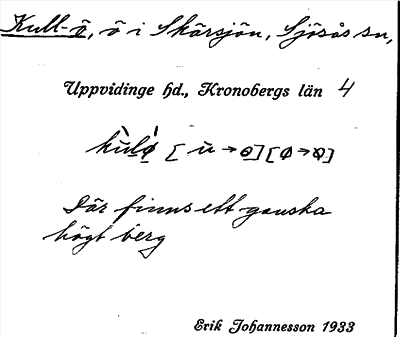 Kull-ö, ö i Skärsjön, Sjösås sn,
Uppvidinge hd., Kronobergs län 4
kùlǿ [ù→o][ǿ→o]
Där finns ett ganska
högt berg
Erik Johannesson 1933